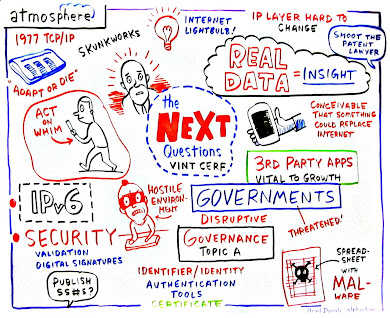 atmosphere
1977 TCP/IP
"ADAPT OR DIE"
SKUNKWORKS
INTERNET
LIGHTBULB!
IP LAYER HARD TO
CHANGE
SHOOT THE
PATENT
LAWYER
REAL
DATA = INSIGHT
ACT
ON
WHIM
the
NEXT
Questions
VINT CERF
CONCEIVABLE
THAT SOMETHING
COULD REPLACE
INTERNET
3RD PARTY APPS
VITAL TO GROWTH
IPv6
HOSTILE
ENVIRON-
MENT
GOVERNMENTS
DISRUPTIVE
THREATENED!
SECURITY
VALIDATION
DIGITAL SIGNATURES
GOVERNANCE
TOPIC A
PUBLISH
$$#$?
IDENTIFIER/IDENTITY
AUTHENTICATION
TOOLS
CERTIFICATE
SPREAD-
SHEET
WITH
MAL-
WARE